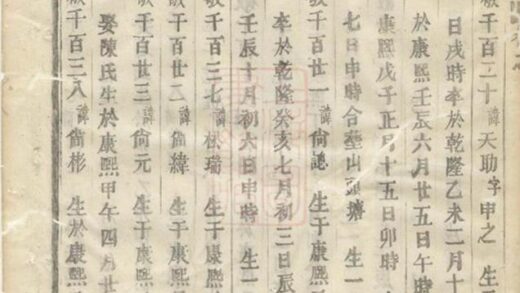 敬千百二十 諱天助字申之 生于
日戌時卒於乾隆乙未二月十
於康熙壬辰六月廿五日午時
康熙戊子正月十五日卯時
七日申時合塟山頭搪
敬千百廿一 諱尙認 生于康熙
卒於乾隆癸亥七月初三日辰
壬辰十月初六日申時 生一
敬千百三七 諱松瑞 生于康
敬千百廿二 諱尙緯 生于康熙
敬千百廿三 諱尙元 生于康熙
娶陳氏生於康熙甲午四月廿
敬千百三八 諱尙彬 生於康熙